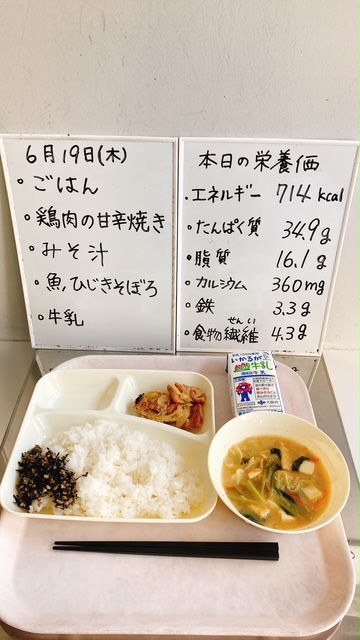 6月19日(木)
・ごはん
・鶏肉の甘辛焼き
・みそ汁
・魚ひじきそぼろ
・牛乳
本日の栄養価
・エネルギー 714 kcal
・たんぱく質 34.9g
・脂質 16.1g
・カルシウム 360mg
・鉄 3.3g
せんい
・食物繊維 4.3g
いかるが
牛乳